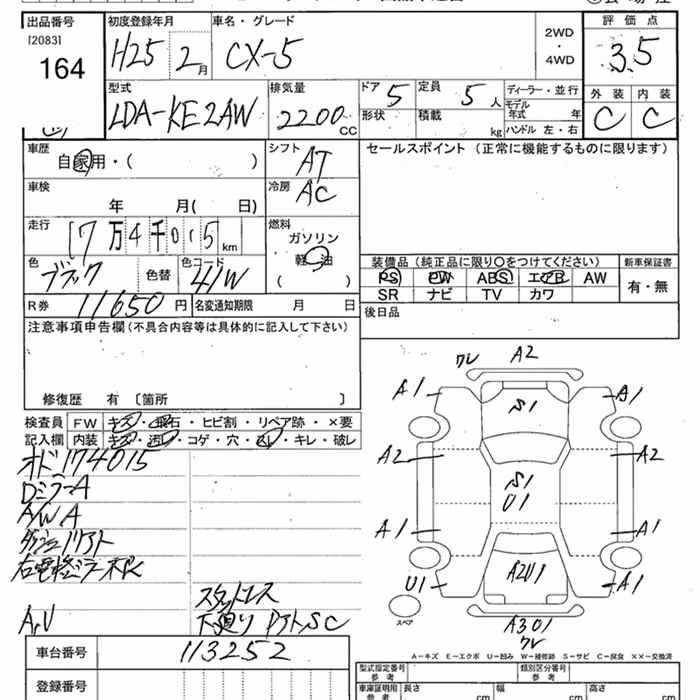 出品番号 初度登録年月 車名・グレード 評価点
[2083] H25 2月 CX-5 2WD ・ 4WD 3.5
164
型式 排気量 ドア 5 定員 5人 ディーラー・並行 外装 内装
LDA-KE2AW 2200cc 形状 積載 kg モデル年式 年 C C
ハンドル 左・右
車歴 自家用・( ) シフト AT セールスポイント (正常に機能するものに限ります)
車検 年 月( 日) 冷房 AC
走行 17万4千015km 燃料 ガソリン 軽油 ( )
色 ブラック 色替 色コード 41W
装備品 (純正品に限り〇をつけてください) 新車保証書
PS PW ABS エアB AW 有・無
SR ナビ TV カワ
R券 11650円 名変通知期限 月 日 後日品
注意事項申告欄 (不具合内容等は具体的に記入して下さい)
修復歴 有 〔箇所 〕
検査員 FW キズ・飛石・ヒビ割・リペア跡・×要
記入欄 内装 キズ・汚レ・コゲ・穴・スレ・キレ・破レ
オド 174015
Dミラー A
A/W A
スタッドレス
下廻り
SC
ワレ A2
A1 S1 A1
A2 A2
S1
U1
A1 A1
U1 A2U1 A1
スペア
A3U1
ワレ
A-キズ E-エクボ U-凹み W-補修跡 S-サビ C-腐食 XX-交換済
車台番号 113252
登録番号
型式指定番号 類別区分番号
車庫証明用 長さ cm 幅 cm 高さ cm